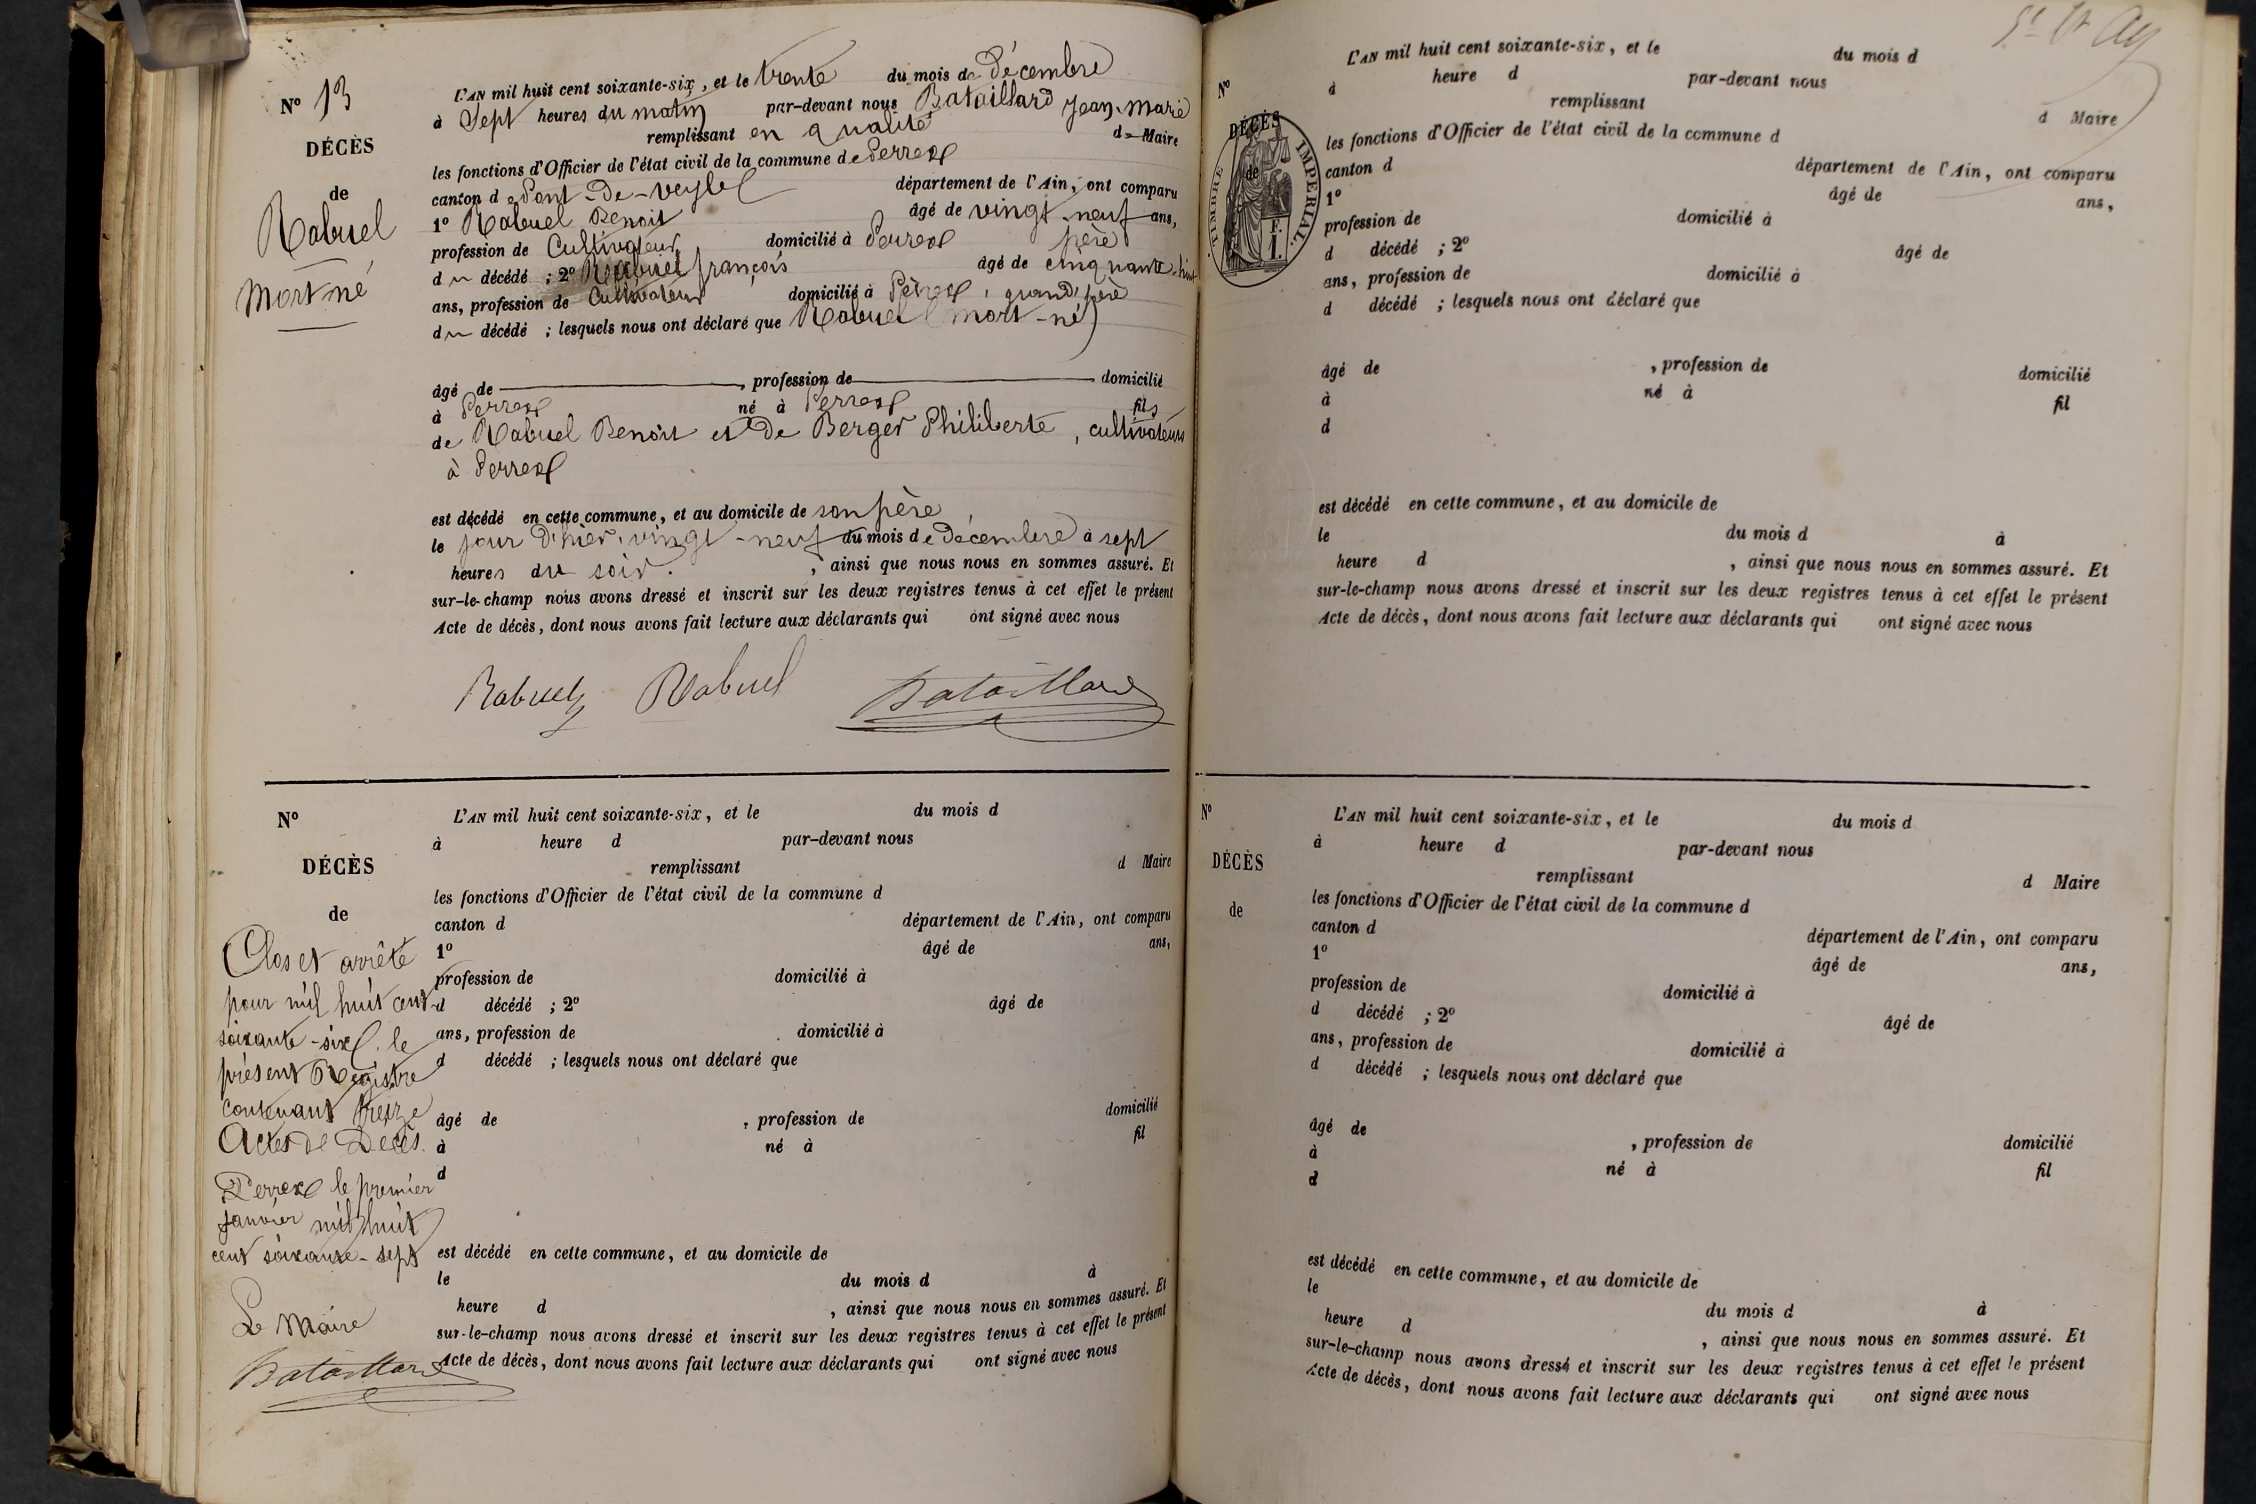 N° 13
DÉCÈS
de
Rabuel
Mort né
L'AN mil huit cent soixante-six, et le trente du mois de Décembre
à Sept heures du matin par-devant nous Bataillard Jean-Marie
remplissant en qualité de Maire
les fonctions d'Officier de l'état civil de la commune de Perrex
canton de Pont-de-Veyle département de l'Ain, ont comparu
1° Rabuel Benoit âgé de vingt-neuf ans,
profession de Cultivateur domicilié à Perrex père
du décédé ; 2° Rabuel françois âgé de cinquante-huit
ans, profession de Cultivateur domicilié à Perrex, grand'père
du décédé ; lesquels nous ont déclaré que Rabuel (mort-né)
âgé de , profession de domicilié
à Perrex né à Perrex fils
de Rabuel Benoit et de Berger Philiberte, cultivateurs
à Perrex
est décédé en cette commune, et au domicile de son père
le jour d'hier, vingt-neuf du mois de Décembre à sept
heures du soir. , ainsi que nous nous en sommes assuré. Et
sur-le-champ nous avons dressé et inscrit sur les deux registres tenus à cet effet le présent
Acte de décès, dont nous avons fait lecture aux déclarants qui ont signé avec nous
Rabuel Rabuel Bataillard
N°
DÉCÈS
de
Clos et arrêté
pour mil huit cent
soixante-six, le
présent Registre
contenant treize
Actes de Décès.
Perrex le premier
janvier mil huit
cent soixante-sept
Le Maire
Bataillard
L'AN mil huit cent soixante-six, et le du mois d
à heure d par-devant nous
remplissant d Maire
les fonctions d'Officier de l'état civil de la commune d
canton d département de l'Ain, ont comparu
1° âgé de ans,
profession de domicilié à
d décédé ; 2° âgé de
ans, profession de domicilié à
d décédé ; lesquels nous ont déclaré que
âgé de , profession de domicilié
à né à fil
d
est décédé en cette commune, et au domicile de
le du mois d à
heure d , ainsi que nous nous en sommes assuré. Et
sur-le-champ nous avons dressé et inscrit sur les deux registres tenus à cet effet le présent
Acte de décès, dont nous avons fait lecture aux déclarants qui ont signé avec nous
N°
DÉCÈS
de
TIMBRE IMPERIAL.
F.
1.
L'AN mil huit cent soixante-six, et le du mois d
à heure d par-devant nous
remplissant d Maire
les fonctions d'Officier de l'état civil de la commune d
canton d département de l'Ain, ont comparu
1° âgé de ans,
profession de domicilié à
d décédé ; 2° âgé de
ans, profession de domicilié à
d décédé ; lesquels nous ont déclaré que
âgé de , profession de domicilié
à né à fil
d
est décédé en cette commune, et au domicile de
le du mois d à
heure d , ainsi que nous nous en sommes assuré. Et
sur-le-champ nous avons dressé et inscrit sur les deux registres tenus à cet effet le présent
Acte de décès, dont nous avons fait lecture aux déclarants qui ont signé avec nous
N°
DÉCÈS
de
L'AN mil huit cent soixante-six, et le du mois d
à heure d par-devant nous
remplissant d Maire
les fonctions d'Officier de l'état civil de la commune d
canton d département de l'Ain, ont comparu
1° âgé de ans,
profession de domicilié à
d décédé ; 2° âgé de
ans, profession de domicilié à
d décédé ; lesquels nous ont déclaré que
âgé de , profession de domicilié
à né à fil
d
est décédé en cette commune, et au domicile de
le du mois d à
heure d , ainsi que nous nous en sommes assuré. Et
sur-le-champ nous avons dressé et inscrit sur les deux registres tenus à cet effet le présent
Acte de décès, dont nous avons fait lecture aux déclarants qui ont signé avec nous